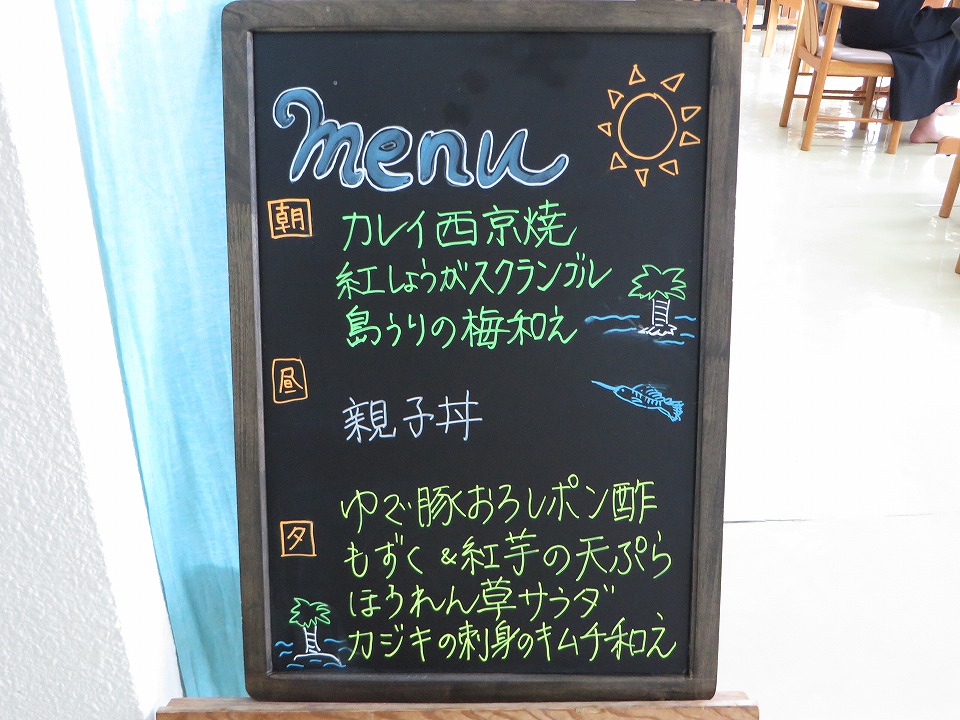 menu
朝
カレイ西京焼
紅しょうがスクランブル
島うりの梅和え
昼
親子丼
夕
ゆで豚おろしポン酢
もずく&紅芋の天ぷら
ほうれん草サラダ
カジキの刺身のキムチ和え